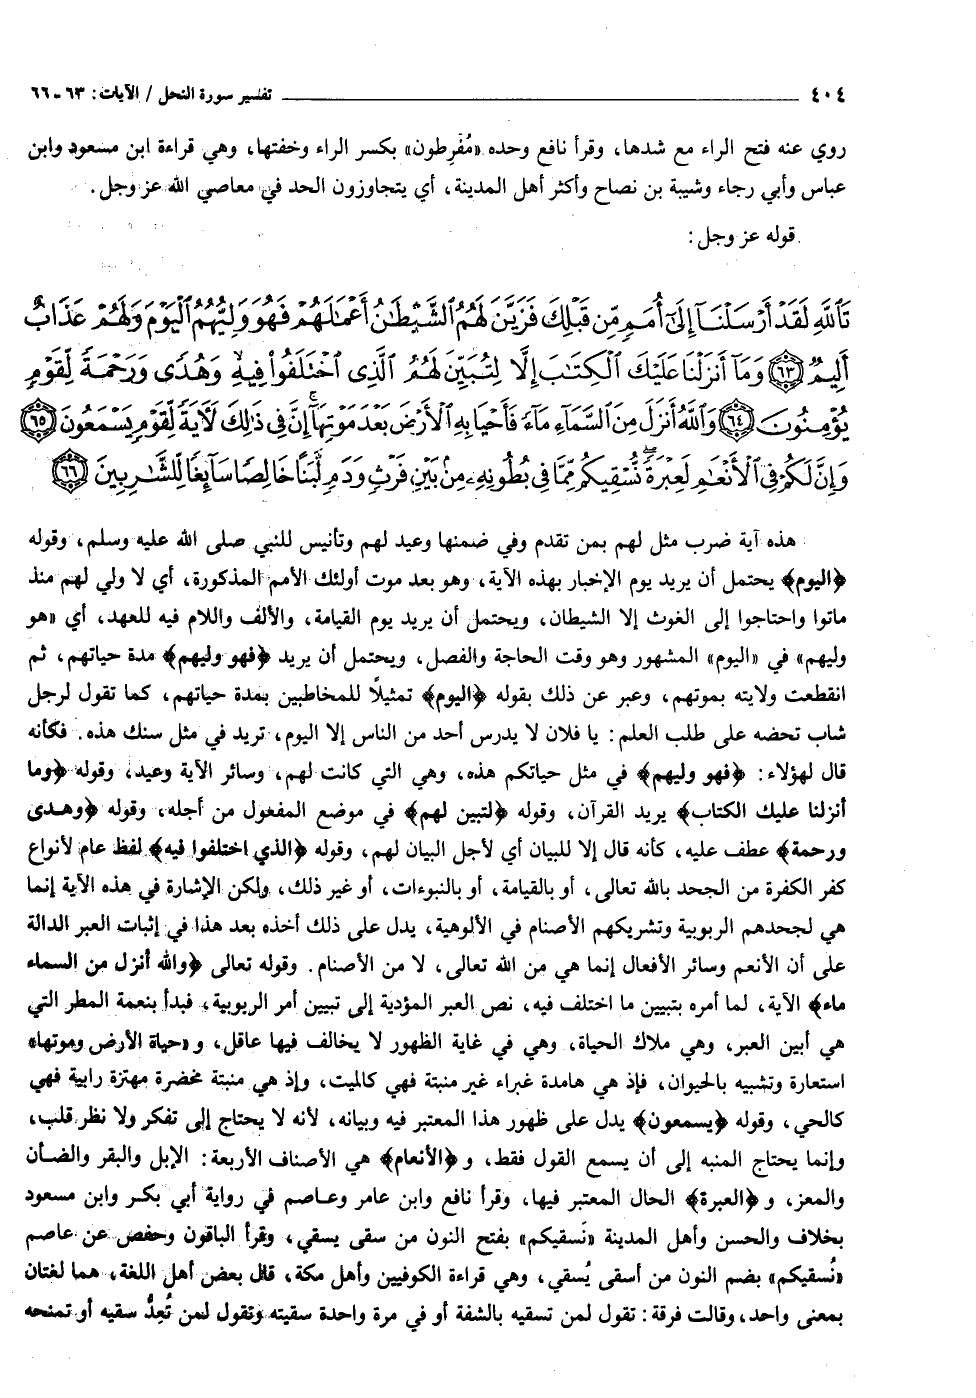 ٤٠٤ ــــــــ تفسير سورة النحل / الآيات: ٦٣ - ٦٦
روي عنه فتح الراء مع شدها، وقرأ نافع وحده «مُفْرِطون» بكسر الراء وخفتها، وهي قراءة ابن مسعود وابن
عباس وأبي رجاء وشيبة بن نصاح وأكثر أهل المدينة، أي يتجاوزون الحد في معاصي الله عز وجل.
قوله عز وجل:
تَاللَّهِ لَقَدْ أَرْسَلْنَا إِلَىٰ أُمَمٍ مِّن قَبْلِكَ فَزَيَّنَ لَهُمُ الشَّيْطَانُ أَعْمَالَهُمْ فَهُوَ وَلِيُّهُمُ الْيَوْمَ وَلَهُمْ عَذَابٌ
أَلِيمٌ ٦٣ وَمَا أَنزَلْنَا عَلَيْكَ الْكِتَابَ إِلَّا لِتُبَيِّنَ لَهُمُ الَّذِي اخْتَلَفُوا فِيهِ وَهُدًى وَرَحْمَةً لِّقَوْمٍ
يُؤْمِنُونَ ٦٤ وَاللَّهُ أَنزَلَ مِنَ السَّمَاءِ مَاءً فَأَحْيَا بِهِ الْأَرْضَ بَعْدَ مَوْتِهَا إِنَّ فِي ذَٰلِكَ لَآيَةً لِّقَوْمٍ يَسْمَعُونَ ٦٥
وَإِنَّ لَكُمْ فِي الْأَنْعَامِ لَعِبْرَةً نُّسْقِيكُم مِّمَّا فِي بُطُونِهِ مِن بَيْنِ فَرْثٍ وَدَمٍ لَّبَنًا خَالِصًا سَائِغًا لِّلشَّارِبِينَ ٦٦
هذه آية ضرب مثل لهم بمن تقدم وفي ضمنها وعيد لهم وتأنيس للنبي صلى الله عليه وسلم، وقوله
﴿اليوم﴾ يحتمل أن يريد يوم الإخبار بهذه الآية، وهو بعد موت أولئك الأمم المذكورة، أي لا ولي لهم منذ
ماتوا واحتاجوا إلى الغوث إلا الشيطان، ويحتمل أن يريد يوم القيامة، والألف واللام فيه للعهد، أي «هو
وليهم» في «اليوم» المشهور وهو وقت الحاجة والفصل، ويحتمل أن يريد ﴿فهو وليهم﴾ مدة حياتهم، ثم
انقطعت ولايته بموتهم، وعبر عن ذلك بقوله ﴿اليوم﴾ تمثيلًا للمخاطبين بمدة حياتهم، كما تقول لرجل
شاب تحضه على طلب العلم: يا فلان لا يدرس أحد من الناس إلا اليوم، تريد في مثل سنك هذه. فكأنه
قال لهؤلاء: ﴿فهو وليهم﴾ في مثل حياتكم هذه، وهي التي كانت لهم، وسائر الآية وعيد، وقوله ﴿وما
أنزلنا عليك الكتاب﴾ يريد القرآن، وقوله ﴿لتبين لهم﴾ في موضع المفعول من أجله، وقوله ﴿وهدى
ورحمة﴾ عطف عليه، كأنه قال إلا للبيان أي لأجل البيان لهم، وقوله ﴿الذي اختلفوا فيه﴾ لفظ عام لأنواع
كفر الكفرة من الجحد بالله تعالى، أو بالقيامة، أو بالنبوءات، أو غير ذلك، ولكن الإشارة في هذه الآية إنما
هي لجحدهم الربوبية وتشريكهم الأصنام في الألوهية، يدل على ذلك أخذه بعد هذا في إثبات العبر الدالة
على أن الأنعم وسائر الأفعال إنما هي من الله تعالى، لا من الأصنام. وقوله تعالى ﴿والله أنزل من السماء
ماء﴾ الآية، لما أمره بتبيين ما اختلف فيه، نص العبر المؤدية إلى تبيين أمر الربوبية، فبدأ بنعمة المطر التي
هي أبين العبر، وهي ملاك الحياة، وهي في غاية الظهور لا يخالف فيها عاقل، و «حياة الأرض وموتها»
استعارة وتشبيه بالحيوان، فإذ هي هامدة غبراء غير منبتة فهي كالميت، وإذ هي منبتة مخضرة مهتزة رابية فهي
كالحي، وقوله ﴿يسمعون﴾ يدل على ظهور هذا المعتبر فيه وبيانه، لأنه لا يحتاج إلى تفكر ولا نظر قلب،
وإنما يحتاج المنبه إلى أن يسمع القول فقط، و ﴿الأنعام﴾ هي الأصناف الأربعة: الإبل والبقر والضأن
والمعز، و ﴿العبرة﴾ الحال المعتبر فيها، وقرأ نافع وابن عامر وعاصم في رواية أبي بكر وابن مسعود
بخلاف والحسن وأهل المدينة «نَسقيكم» بفتح النون من سقى يسقي، وقرأ الباقون وحفص عن عاصم
«نُسقيكم» بضم النون من أسقى يُسقي، وهي قراءة الكوفيين وأهل مكة، قال بعض أهل اللغة، هما لغتان
بمعنى واحد، وقالت فرقة: تقول لمن تسقيه بالشفة أو في مرة واحدة سقيته وتقول لمن تُعِدُّ سقيه أو تمنحه